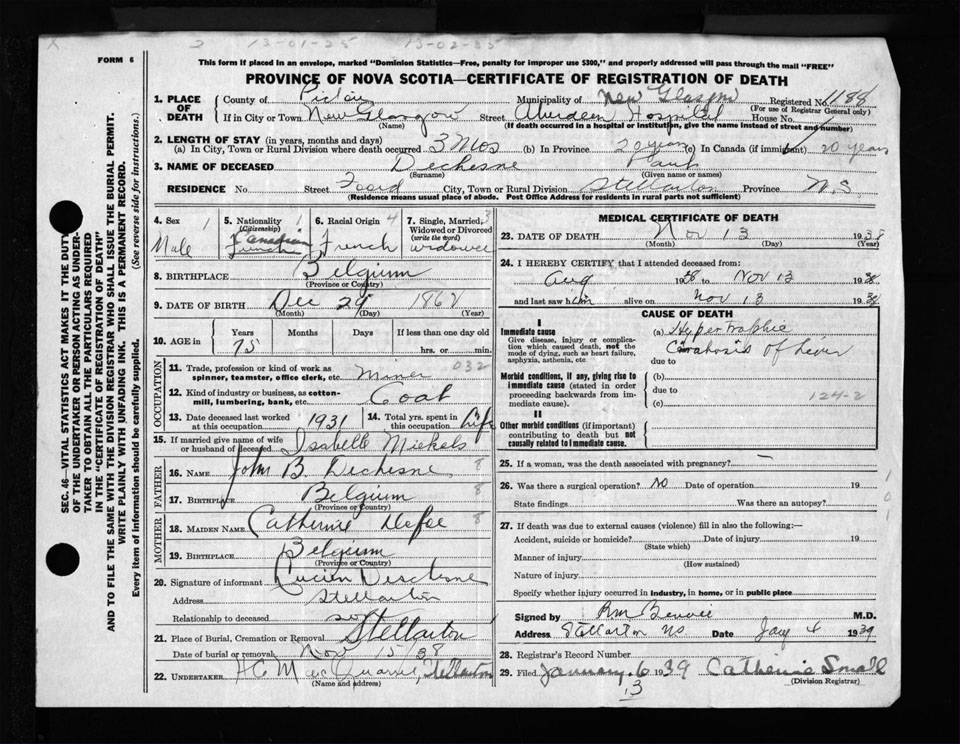 2 13-01-25 13-02-35
FORM 6
This form if placed in an envelope, marked "Dominion Statistics—Free, penalty for improper use $300," and properly addressed will pass through the mail "FREE"
PROVINCE OF NOVA SCOTIA—CERTIFICATE OF REGISTRATION OF DEATH
SEC. 46—VITAL STATISTICS ACT MAKES IT THE DUTY
OF THE UNDERTAKER OR PERSON ACTING AS UNDER-
TAKER TO OBTAIN ALL THE PARTICULARS REQUIRED
IN THE "CERTIFICATE OF REGISTRATION OF DEATH"
AND TO FILE THE SAME WITH THE DIVISION REGISTRAR WHO SHALL ISSUE THE BURIAL PERMIT.
WRITE PLAINLY WITH UNFADING INK. THIS IS A PERMANENT RECORD.
Every item of information should be carefully supplied. (See reverse side for instructions.)
1. PLACE OF DEATH County of Pictou Municipality of New Glasgow Registered No. 1188
(For use of Registrar General only)
If in City or Town New Glasgow Street Aberdeen Hospital House No.
(Name) (If death occurred in a hospital or institution, give the name instead of street and number)
2. LENGTH OF STAY (in years, months and days)
(a) In City, Town or Rural Division where death occurred 3 Mos (b) In Province 20 years (c) In Canada (if immigrant) 20 years
3. NAME OF DECEASED Dechesne Paul
(Surname) (Given name or names)
RESIDENCE No. Street Foord City, Town or Rural Division Stellarton Province N.S.
(Residence means usual place of abode. Post Office Address for residents in rural parts not sufficient)
4. Sex 1 Male
5. Nationality 1 (Citizenship) Canadian French
6. Racial Origin 4 French
7. Single, Married, Widowed or Divorced 3 (write the word) Widower
8. BIRTHPLACE Belgium
(Province or Country)
9. DATE OF BIRTH Dec 29 1862
(Month) (Day) (Year)
10. AGE in Years Months Days If less than one day old
75 hrs. or min.
OCCUPATION
11. Trade, profession or kind of work as spinner, teamster, office clerk, etc. Miner 032
12. Kind of industry or business, as cotton-mill, lumbering, bank, etc. Coal
13. Date deceased last worked at this occupation 1931 14. Total yrs. spent in this occupation Life
15. If married give name of wife or husband of deceased Isabelle Nickels
FATHER
16. NAME John B. Dechesne 8
17. BIRTHPLACE Belgium 8
(Province or Country)
MOTHER
18. MAIDEN NAME Catherine Defoe 8
19. BIRTHPLACE Belgium
(Province or Country)
20. Signature of informant Lucien Deschesne
Address Stellarton
Relationship to deceased son
21. Place of Burial, Cremation or Removal Stellarton
Date of burial or removal Nov 15/38
22. UNDERTAKER H C MacQuarrie, Stellarton
(Name and address)
MEDICAL CERTIFICATE OF DEATH
23. DATE OF DEATH Nov 13 1938
(Month) (Day) (Year)
24. I HEREBY CERTIFY that I attended deceased from:
Aug 1938 to Nov 13 1938
and last saw him alive on Nov 13 1938
CAUSE OF DEATH
I
Immediate cause (a) Hypertrophic
Give disease, injury or complication which caused death, not the mode of dying, such as heart failure, asphyxia, asthenia, etc. Cirrhosis of Liver
due to
Morbid conditions, if any, giving rise to immediate cause (stated in order proceeding backwards from immediate cause). (b)
due to 124-2
(c)
II
Other morbid conditions (if important) contributing to death but not causally related to immediate cause.
25. If a woman, was the death associated with pregnancy? —
26. Was there a surgical operation? No Date of operation 19
State findings Was there an autopsy?
101
27. If death was due to external causes (violence) fill in also the following:—
Accident, suicide or homicide? Date of injury 19
(State which)
Manner of injury
(How sustained)
Nature of injury
Specify whether injury occurred in industry, in home, or in public place
Signed by M.D.
Address Stellarton NS Date Jany 4 1939
28. Registrar's Record Number
29. Filed January 6 1939 Catherine Small
13 (Division Registrar)